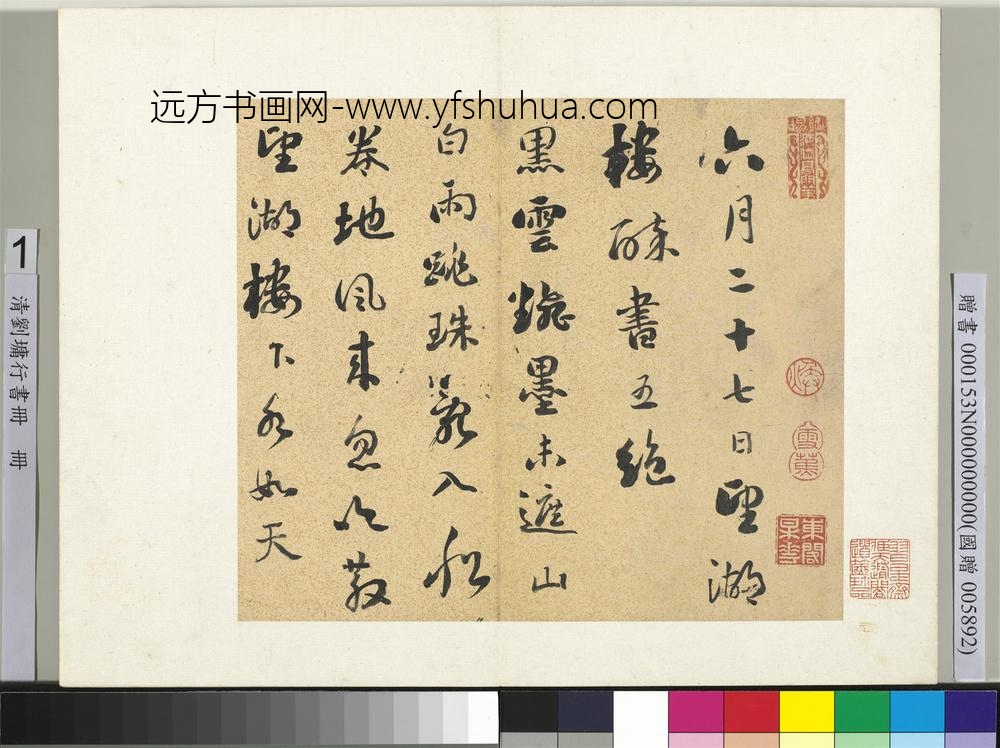 远方书画网-www.yfshuhua.com
六月二十七日望湖
樓醉書五絕
黑雲翻墨未遮山
白雨跳珠亂入船
卷地風來忽吹散
望湖樓下水如天
雪蕉
東閣
1
清劉墉行書冊 冊
贈書 000153N000000000(國贈 005892)